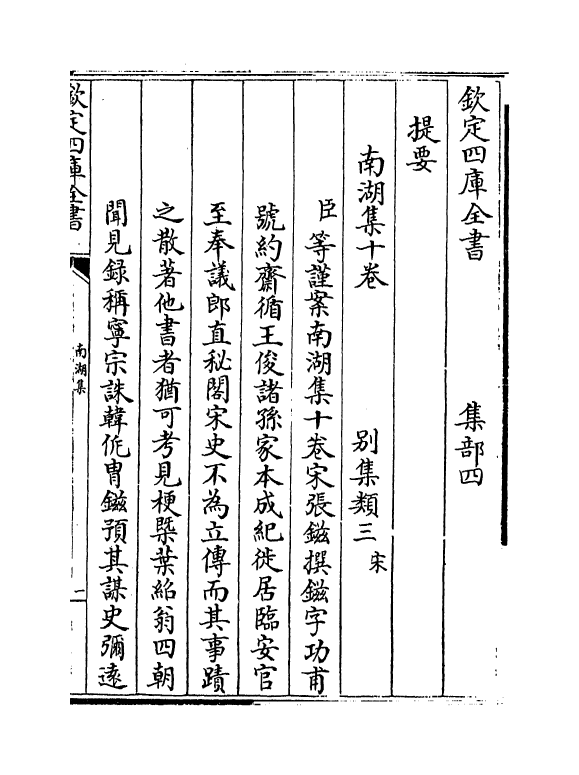 欽定四庫全書　集部四
提要
南湖集十卷　別集類三宋
臣等謹案南湖集十卷宋張鎡撰鎡字功甫
號約齋循王俊諸孫家本成紀徙居臨安官
至奉議郎直秘閣宋史不為立傳而其事蹟
之散著他書者猶可考見梗槩葉紹翁四朝
聞見録稱寧宗誅韓侂胄鎡預其謀史彌逺
欽定四庫全書
南湖集
一